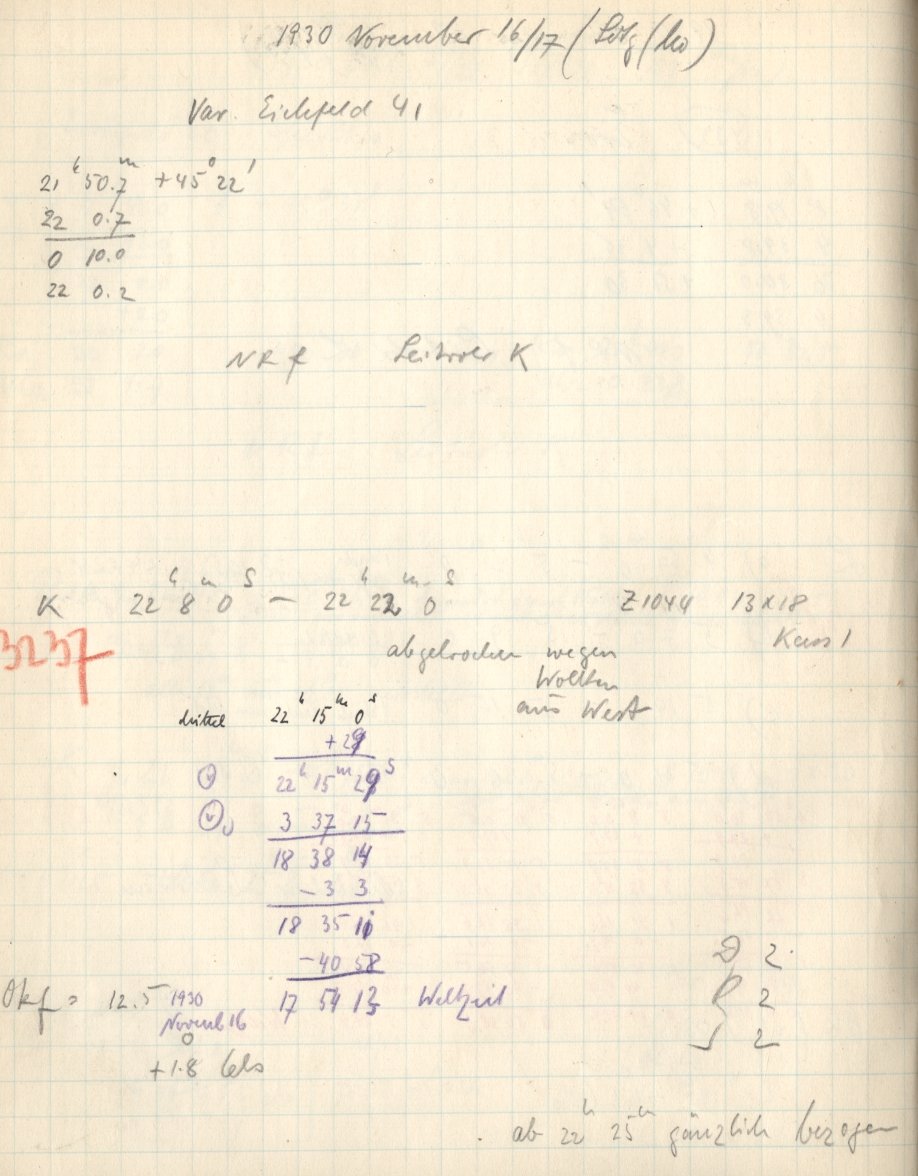 1930 November 16/17
Var. Eichfeld 41
21ʰ 50.7ᵐ +45° 22'
22 0.7
0 10.0
22 0.2
NR f Leitrohr K
K 22ʰ 8ᵐ 0ˢ – 22ʰ 22ᵐ 0ˢ Z1044 13x18
Kass 1
3237
abgebrochen wegen
Wolken
aus West
Mittel 22ʰ 15ᵐ 0ˢ
+29
22ʰ 15ᵐ 29ˢ
3 37 15
18 38 14
–3 3
18 35 11
–40 58
Okf = 12.5 1930 17 54 13 Weltzeit
Novemb 16
+1.8° Cels
2
R 2
2
ab 22ʰ 25ᵐ gänzlich bezogen